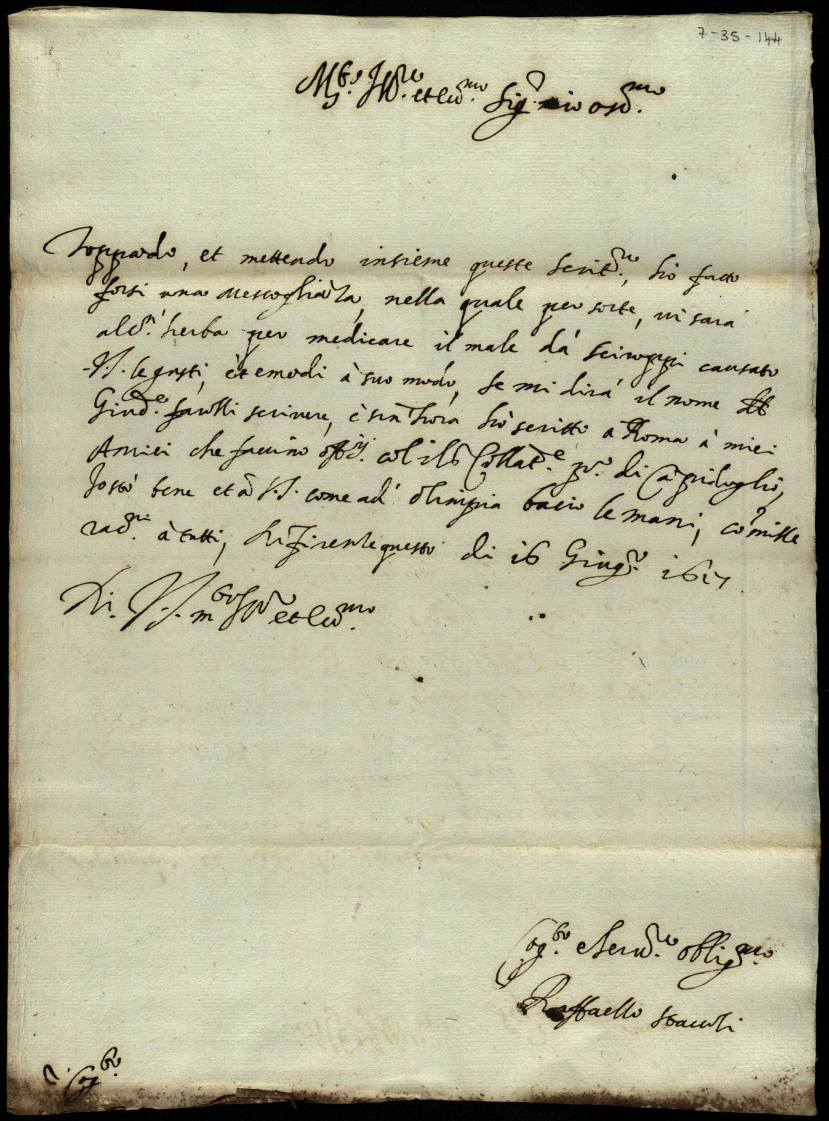 7-35-144
M.to Ill.re et ecc.mo Sig.r mio oss.mo
Zoppardo, et mettendo insieme queste scritt.re, hò fatto
forsi una mescoglianza, nella quale per sorte, vi sarà
alc.a herba per medicare il male dà sciroppi causato
V.S. le gusti, et emodi à suo modo, se mi dirà il nome
Giud.e farolli scrivere, è sin hora hò scritto a Roma à miei
Amici che faccino off.ij col il Collat.e p.o di Capidoglio,
Io stò bene et à V.S. come ad' Olimpia bacio le mani, cò mille
rac.ni à tutti, di Firenle questo di 16 Giug.o 1617
Di V.S. m.to Ill.re et ecc.mo
Cog.to e Serv.re oblig.mo
Raffaello Staccoli
Cog.to